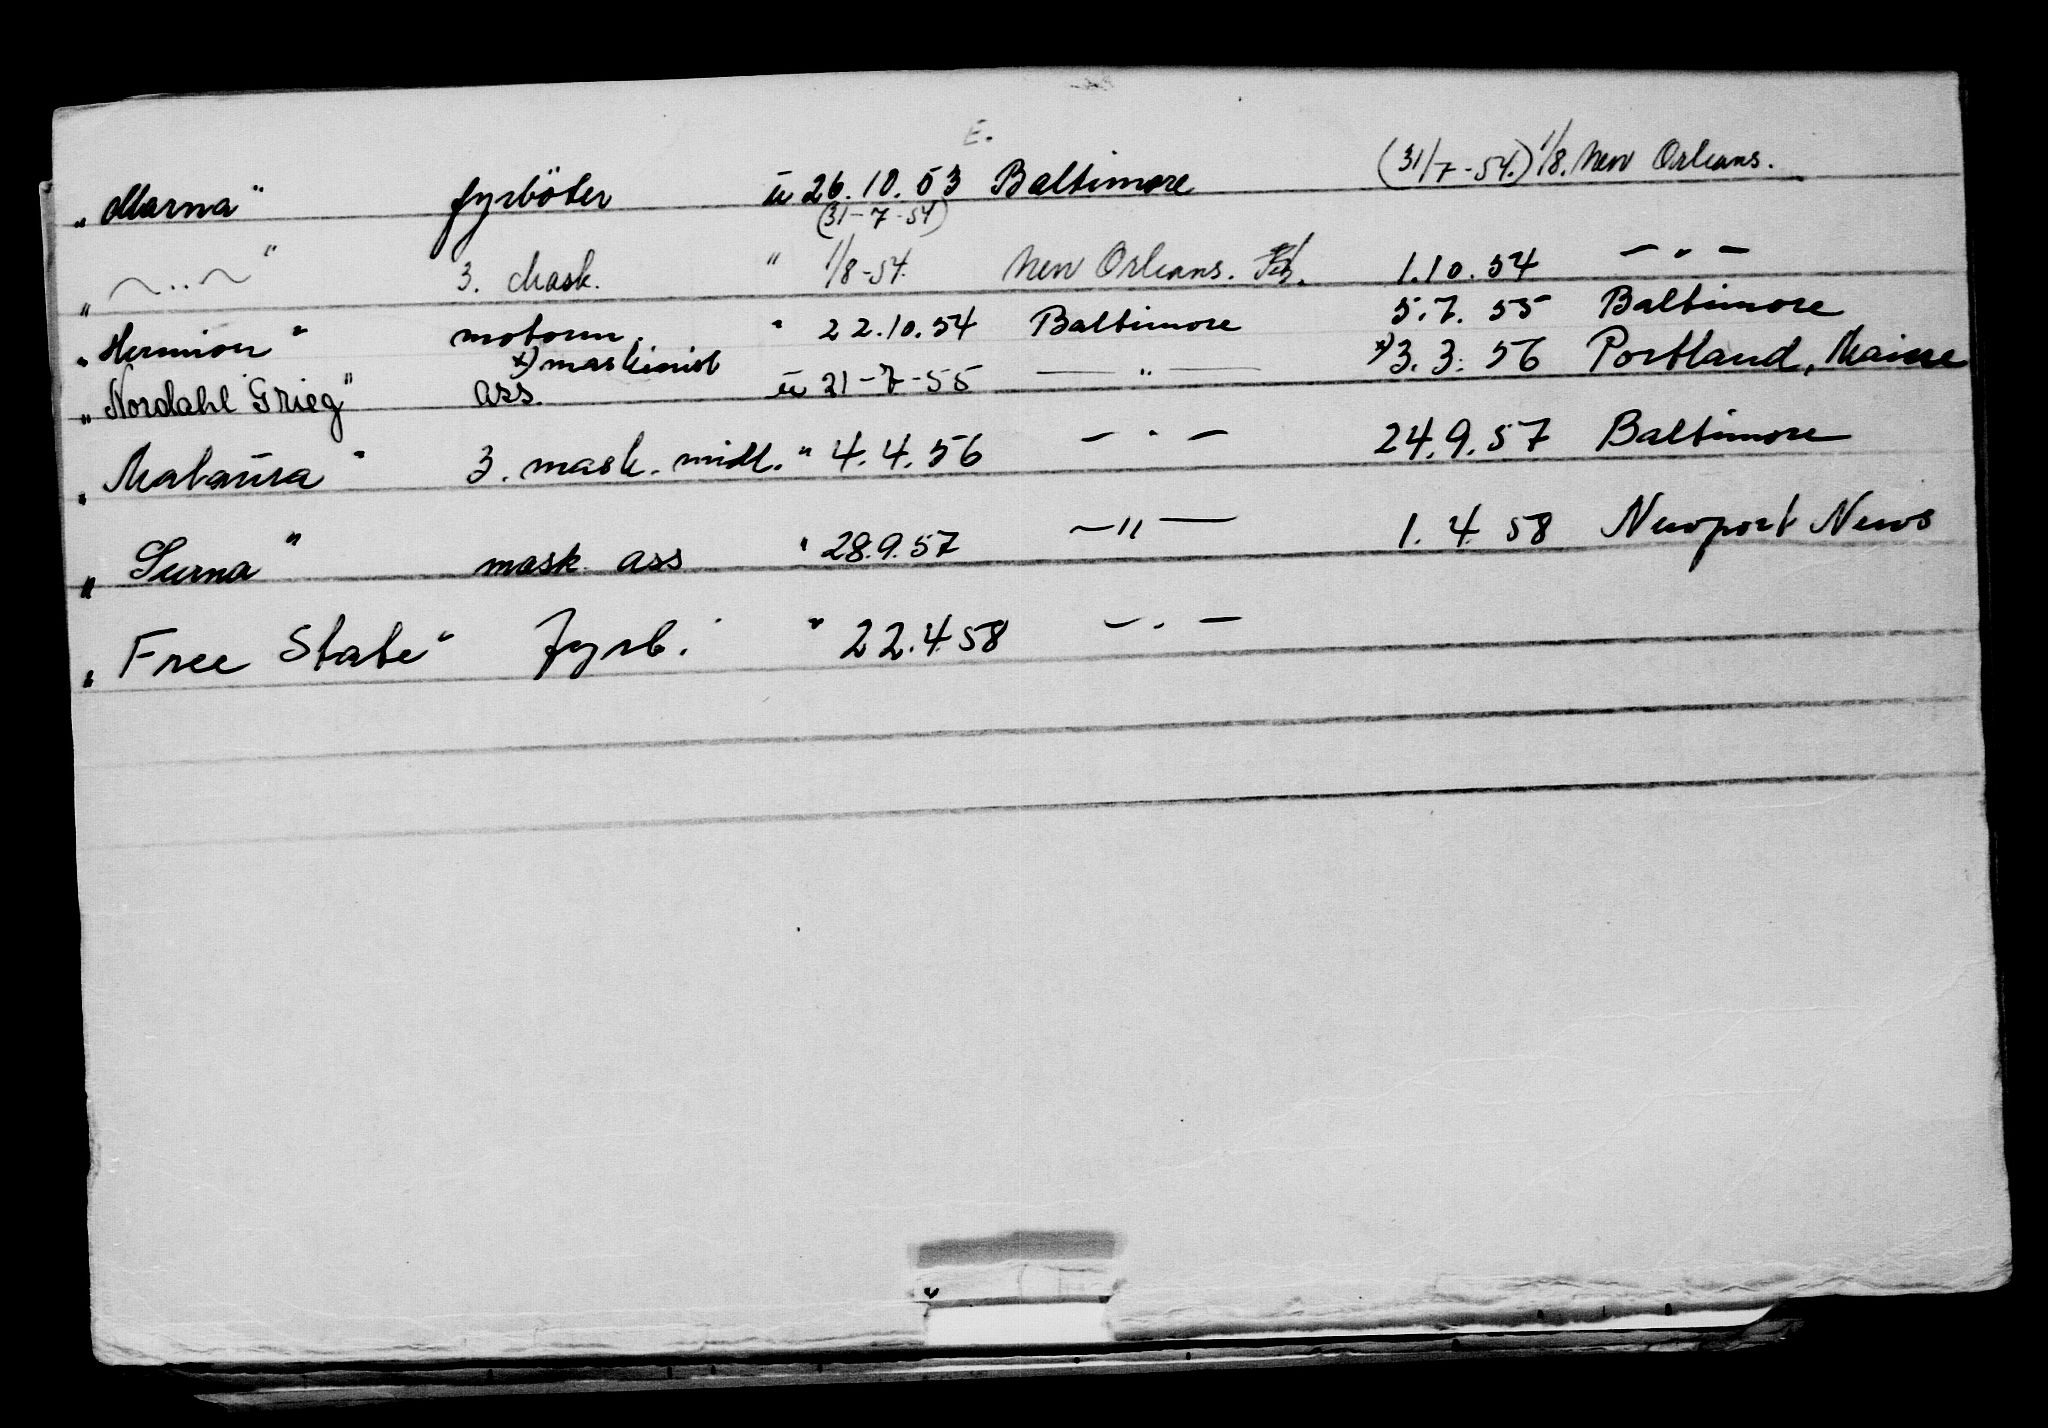 E.
"Marna" fyrböter u 26.10.53 Baltimore (31/7-54.) 1/8. New Orleans.
(31-7-54)
" ~..~ " 3. Mask. " 1/8-54. New Orleans. 1.10.54 — " —
"Hermion" motorm. " 22.10.54 Baltimore 5.7.55 Baltimore
x) maskinist x) 3.3.56 Portland, Maine
"Nordahl Grieg" ass. u 21-7-55 — " —
"Mataura" 3. mask. midl. " 4.4.56 — " — 24.9.57 Baltimore
"Surna" mask ass " 28.9.57 — " — 1.4.58 Newport News
"Free State" fyrb. " 22.4.58 — " —